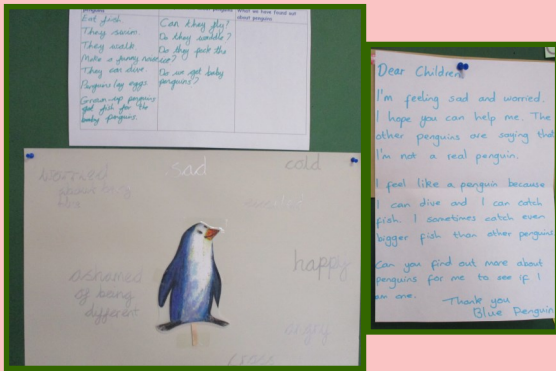 penguins
about penguins
What we have found out
Eat fish.
They swim.
They walk.
Make a funny noise
They can dive.
Penguins lay eggs
Grown-up penguins
get fish for the
baby penguins.
Can they fly?
Do they waddle?
Do they peck the
Do we get baby
penguins?
worried
sad
cold
happy
ashamed
of being
different
angry
cross
Dear Children
I'm feeling sad and worried.
I hope you can help me. The
other penguins are saying that
I'm not a real penguin.
I feel like a penguin because
I can dive and I can catch
fish. I sometimes catch even
bigger fish than other penguins
Can you find out more about
penguins for me to see if I
am one.
Thank you
Blue Penguin